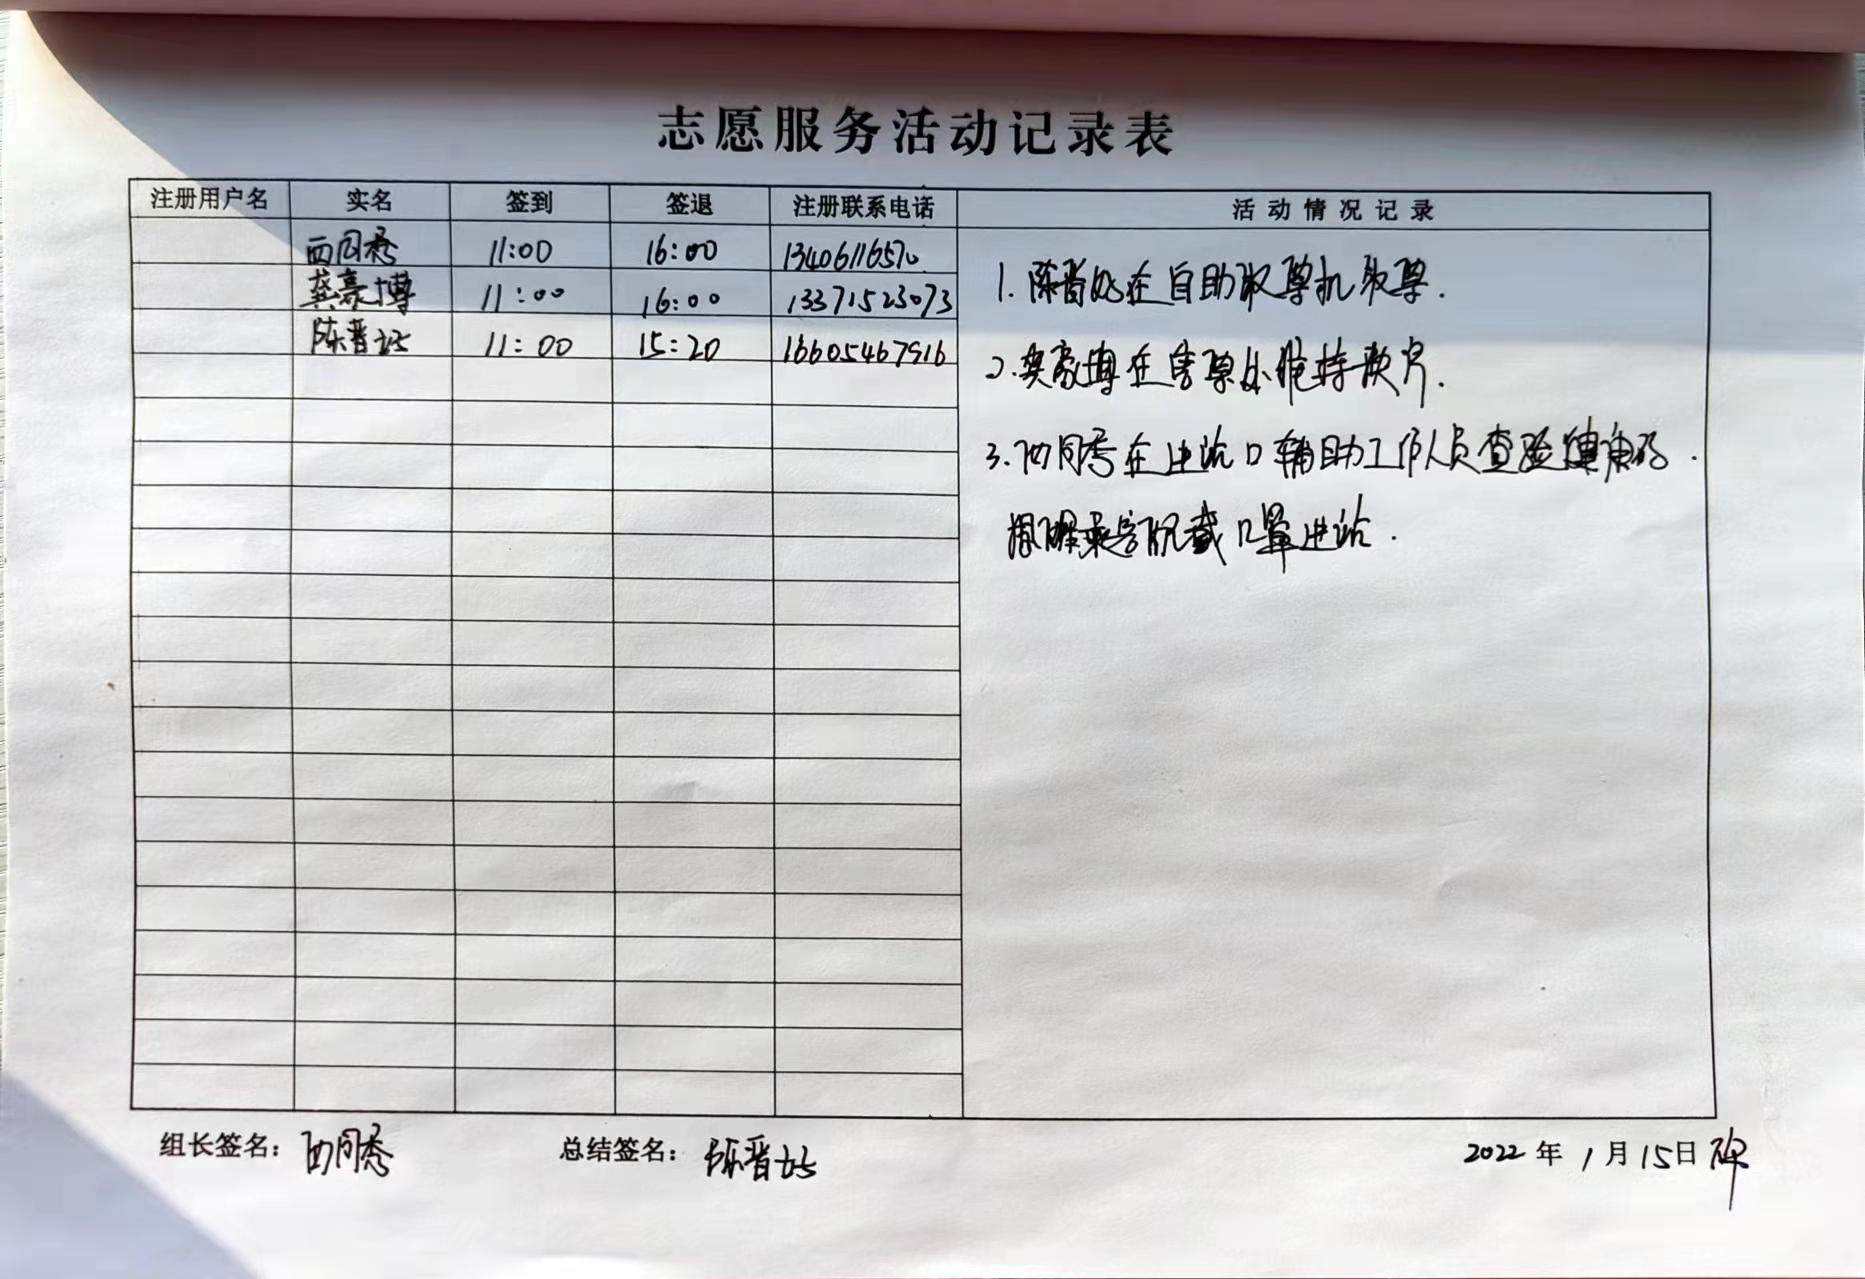 志愿服务活动记录表
注册用户名 实名 签到 签退 注册联系电话 活动情况记录
西同秀 11:00 16:00 13406116570
龚豪博 11:00 16:00 13371523073
陈晋 11:00 15:20 16605467916
1. 陈晋 在自助取票机取票.
2. 龚豪博在售票处维持秩序.
3. 西同秀在进站口辅助工作人员查验健康码.
提醒乘客佩戴口罩进站.
组长签名: 西同秀 总结签名: 陈晋
2022年1月15日